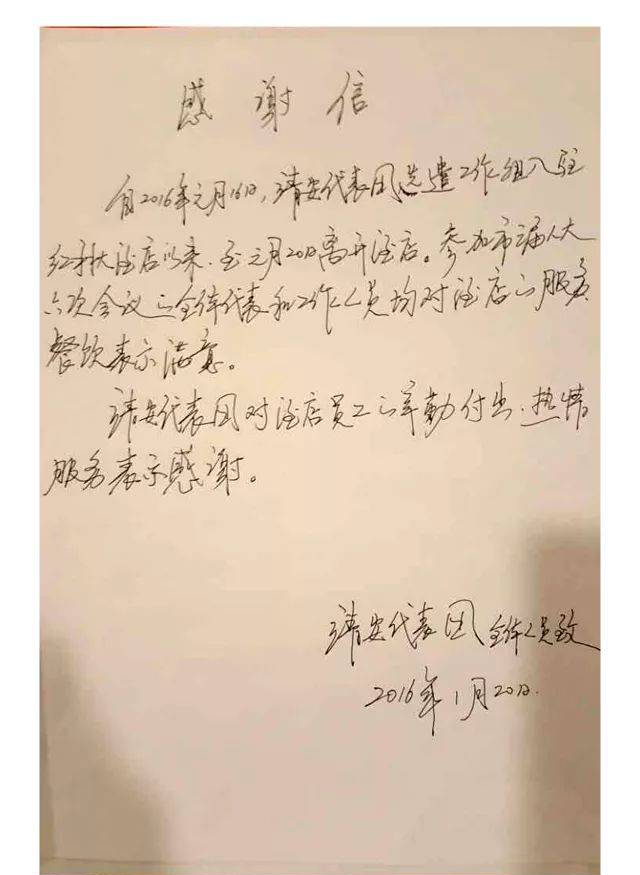 感谢信
自2016年元月16日，靖安代表团选遣工作组入驻
红杉酒店以来，至元月20日离开酒店。参加市届人大
六次会议的全体代表和工作人员均对酒店的服务
餐饮表示满意。
靖安代表团对酒店员工的辛勤付出、热情
服务表示感谢。
靖安代表团全体人员致
2016年1月20日.